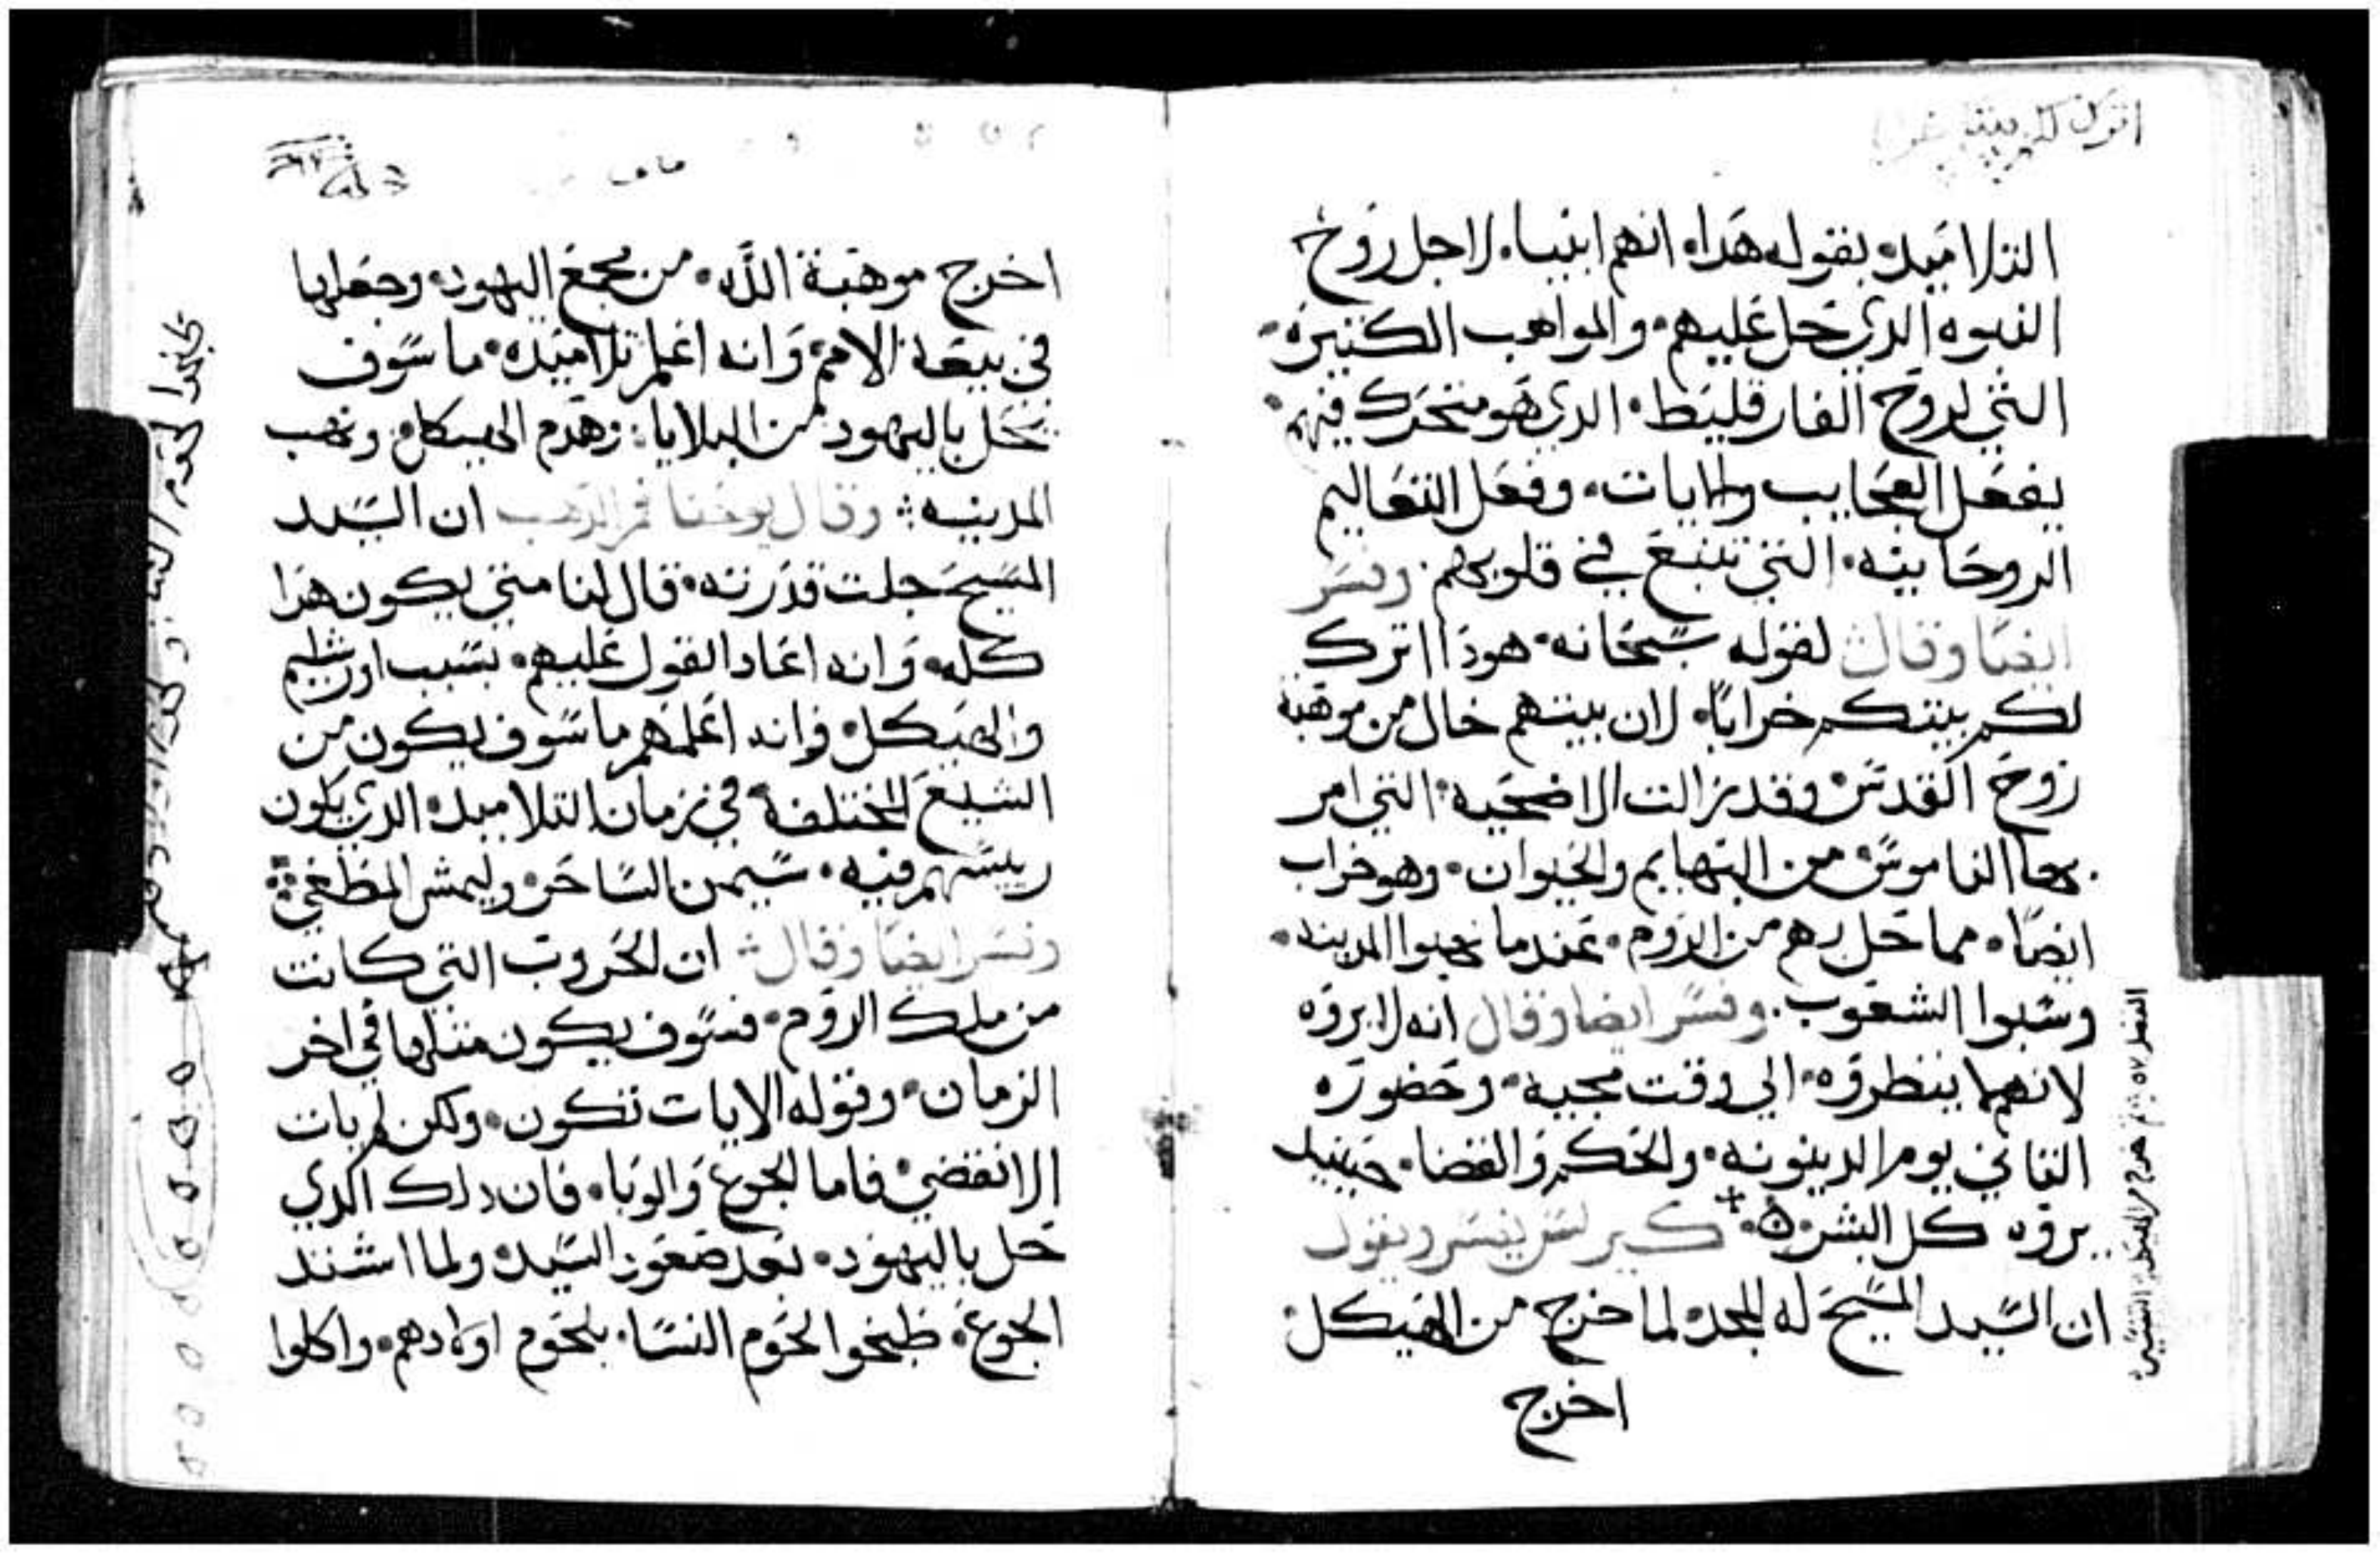 اترك لكم بيتكم خرابا
التلاميد، بقوله هدا، انهم انبيا، لاجل روح
النبوه الدي حل عليهم، والمواهب الكتيره،
التي لروح الفارقليط، الدي هو متحرك فيهم،
يفعل العجايب والايات، وفعل التعاليم
الروحانيه، التي تنبع في قلوبهم. وفسر
ايضا وقال لقوله سبحانه، هودا اترك
لكم بيتكم خرابا، لان بيتهم خال من موهبة
روح القدس، وقد زالت الاضحيه، التي امر
بها الناموس، من البهايم والحيوان، وهو خراب
ايضا، مما حل بهم من الروم، عندما نهبوا المدينه،
وسبوا الشعوب. وفسر ايضا وقال انه لا يروه
لانهم لا ينظروه، الي وقت مجيه، وحضوره
التاني يوم الدينونه، والحكم والقضا، حينيد
يروه كل البشر، كيرلس يفسر ويقول
ان السيد المسيح له المجد، لما خرج من الهيكل،
اخرج
اخرج موهبة الله، من مجمع اليهود، وجعلها
في بيعة الامم، وانه اعلم تلاميده، ما سوف
يحل باليهود من البلايا، وهدم الهيكل، ونهب
المدينه وقال يوحنا فم الدهب ان السيد
المسيح جلت قدرته، قال لنا متي يكون هدا
كله، وانه اعاد القول عليهم، بسبب اورشليم
والهيكل، وانه اعلمهم ما سوف يكون من
الشيع المختلفة في زمان التلاميد، الدي يكون
رييسهم فيه، سيمن الساحر،
وفسر ايضا وقال ان الحروب التي كانت
من ملك الروم، فسوف يكون متلها في اخر
الزمان، وقوله الايات تكون، ولكن لم يات
الانقضي، فاما الجوع والوبا، فان دلك الدي
حل باليهود، بعد صعود السيد، ولما اشتد
الجوع، طبخوا لحوم النسا، بلحوم اولادهم، واكلوا